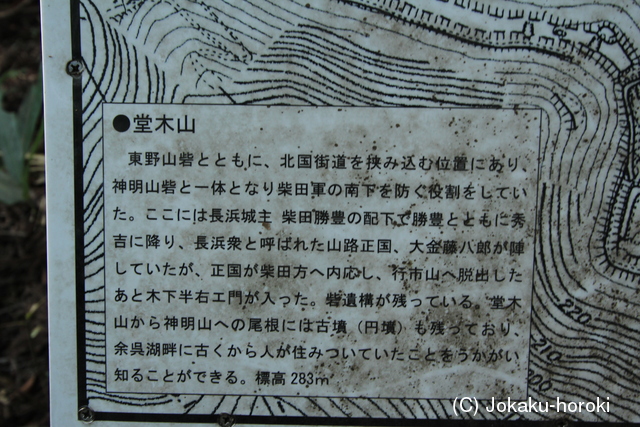 ●堂木山
東野山砦とともに、北国街道を挟み込む位置にあり、
神明山砦と一体となり柴田軍の南下を防ぐ役割をしてい
た。ここには長浜城主 柴田勝豊の配下で勝豊とともに秀
吉に降り、長浜衆と呼ばれた山路正国、大金藤八郎が陣
していたが、正国が柴田方へ内応し、行市山へ脱出した
あと木下半右エ門が入った。砦遺構が残っている。堂木
山から神明山への尾根には古墳（円墳）も残っており、
余呉湖畔に古くから人が住みついていたことをうかがい
知ることができる。標高283m
220
210
(C) Jokaku-horoki